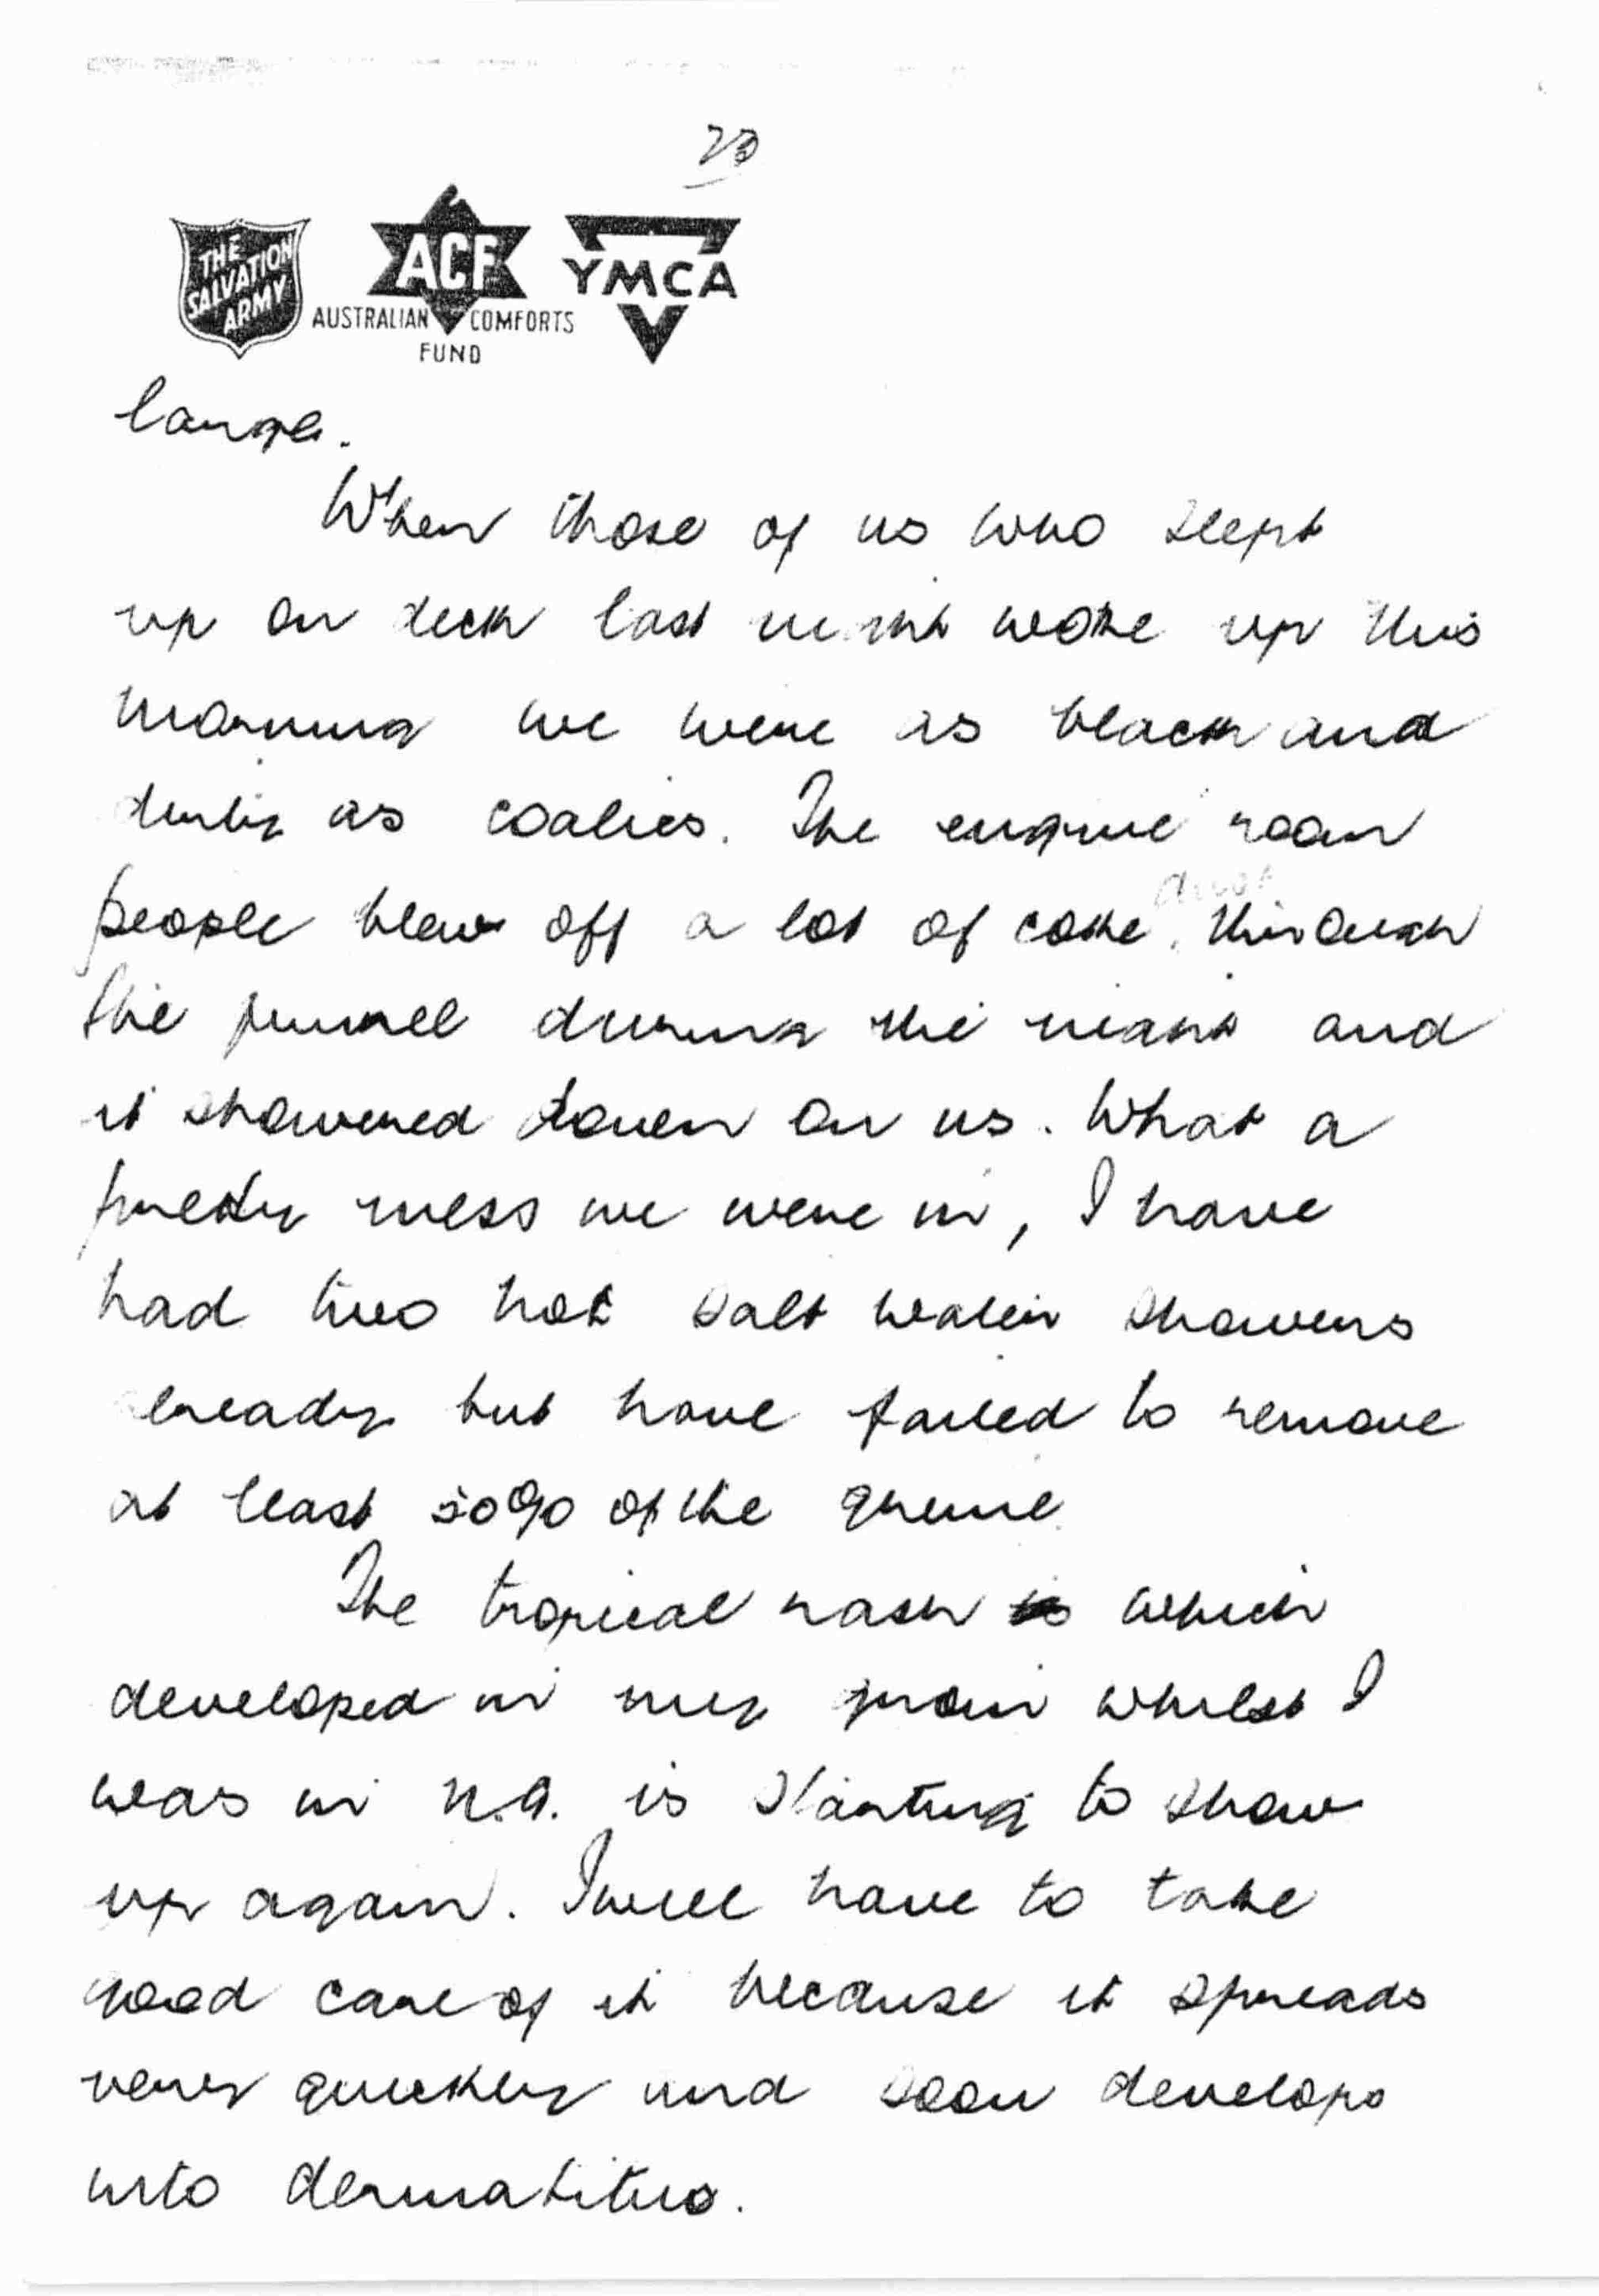 23
THE SALVATION ARMY
ACF
AUSTRALIAN COMFORTS FUND
YMCA
large.
When those of us who slept
up on deck last night woke up this
morning we were as black and
dirty as coalies. The engine room
people blew off a lot of coke dust through
the funnel during the night and
it showered down on us. What a
pretty mess we were in, I have
had two hot salt water showers
already but have failed to remove
at least 50% of the grime.
The tropical rash which
developed in my groin whilst I
was in N.G. is starting to show
up again. I will have to take
good care of it because it spreads
very quickly and soon develops
into dermatitis.